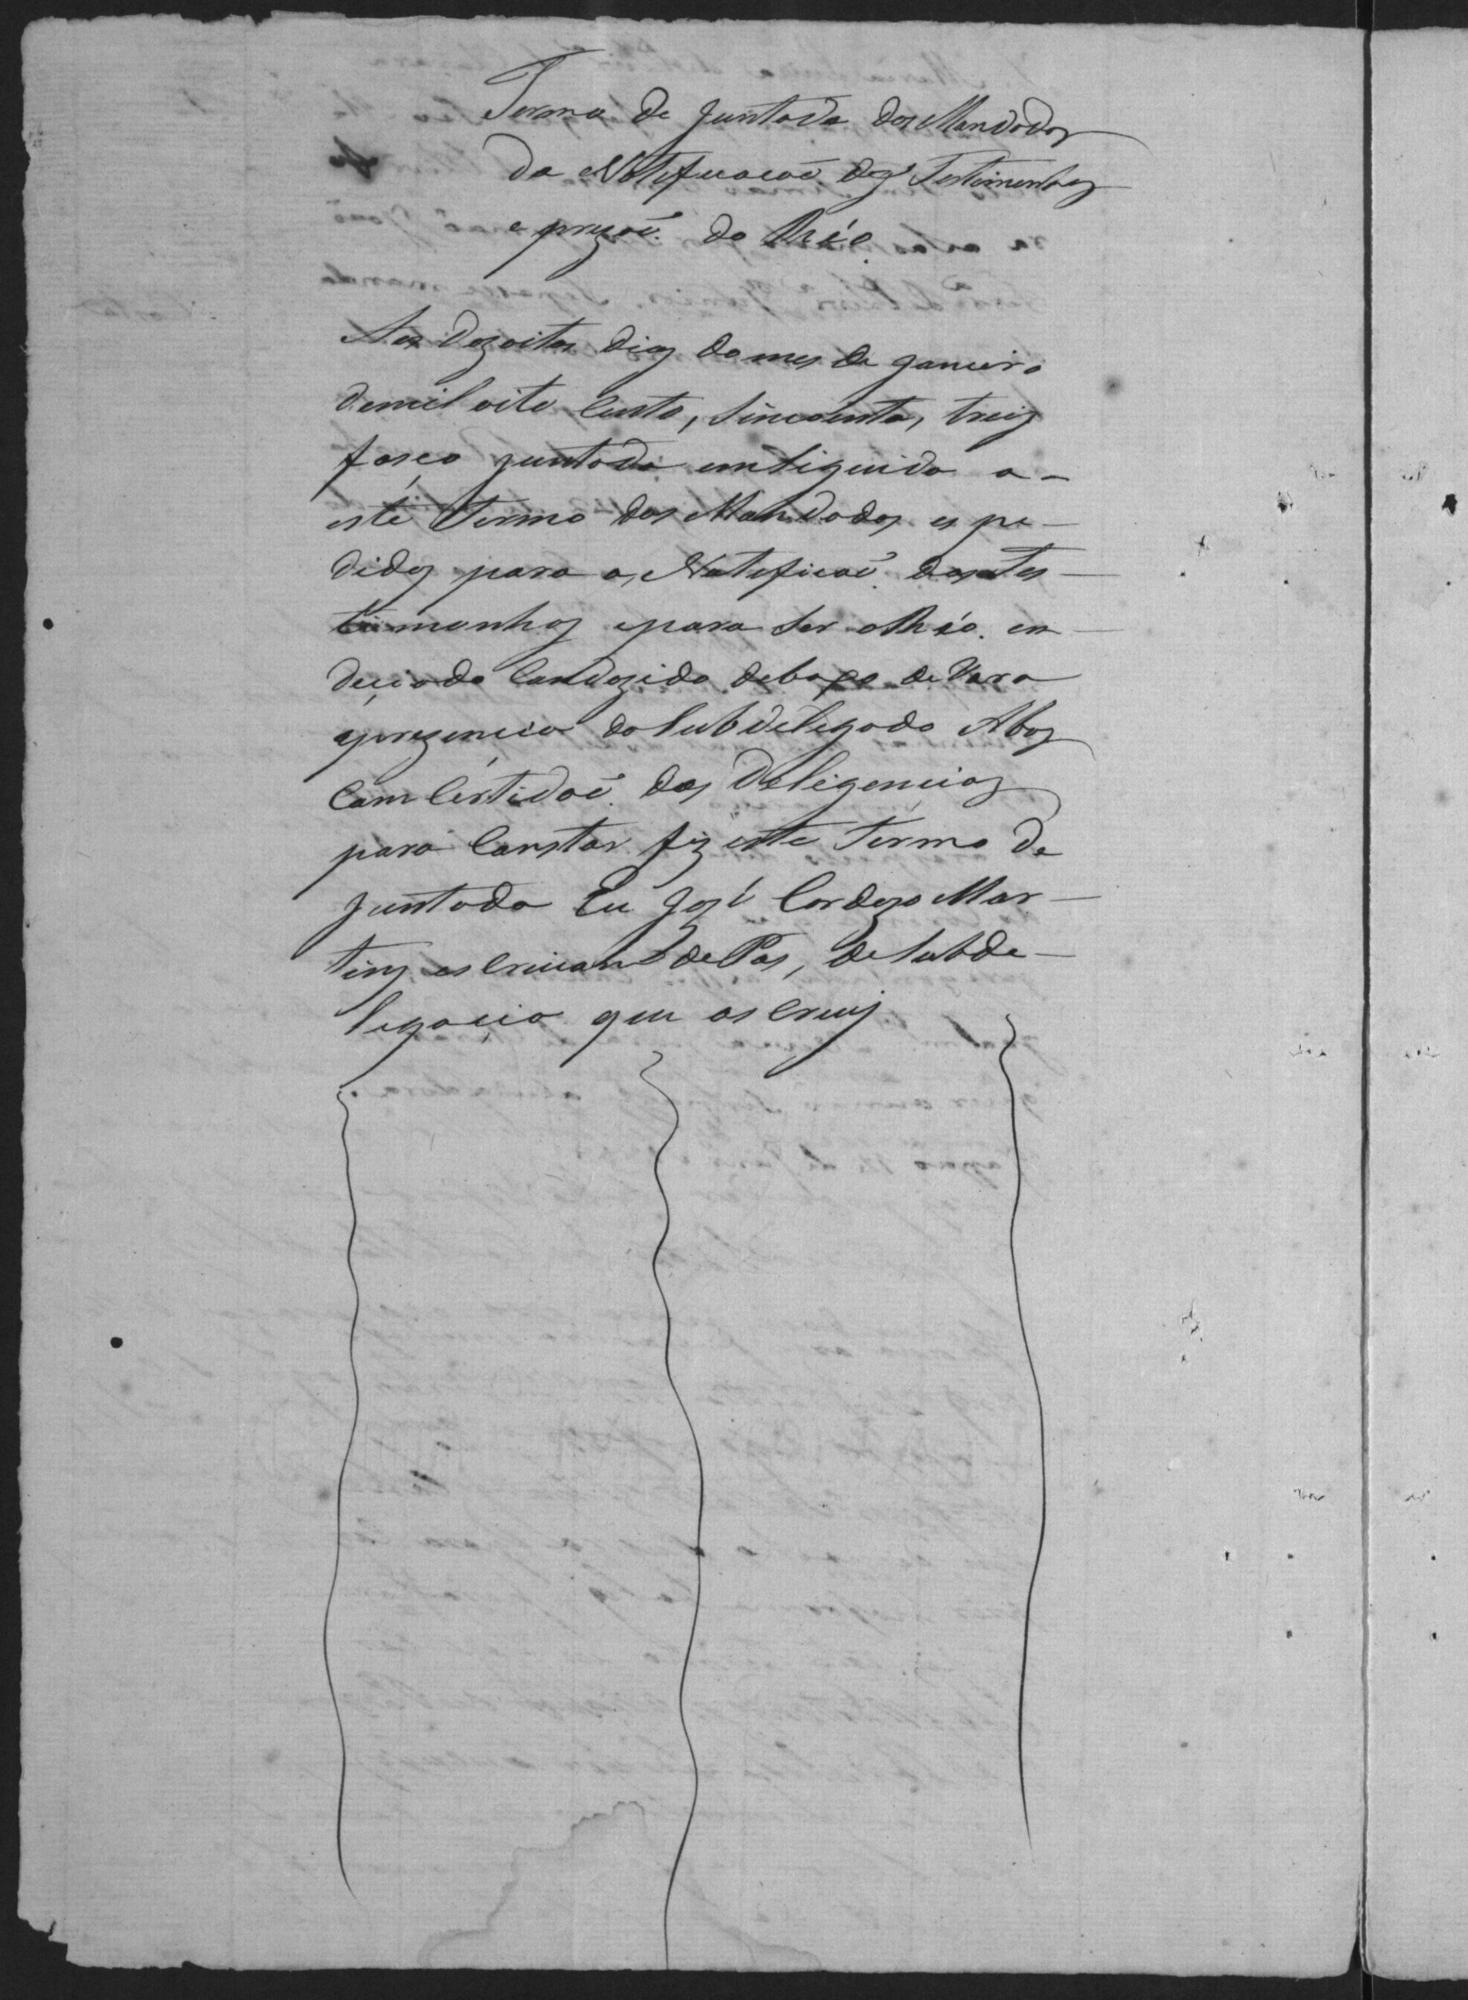 Termo de juntada dos Mandados
da Notificacaõ das Testimunhas
e prizaõ do Rèo.
Aos dezoitos dias do mes de Janeiro
demil oito Cento, sincoenta, treis
fasco juntada emsiguida a
este Termo dos Mandados es pe-
didos para a Notificaõ das Tes-
timonhas epara ser o Rhéo. en
deciado Conduzido debaxo de Vara
aprezencia do Subdelegado Abos
Com Certidaõ das Deligencias
para Constar fiz este Termo de
Juntada Eu José Cordozo Mar-
tins escrivam de Pas, de Subde-
legacia que os Crevi